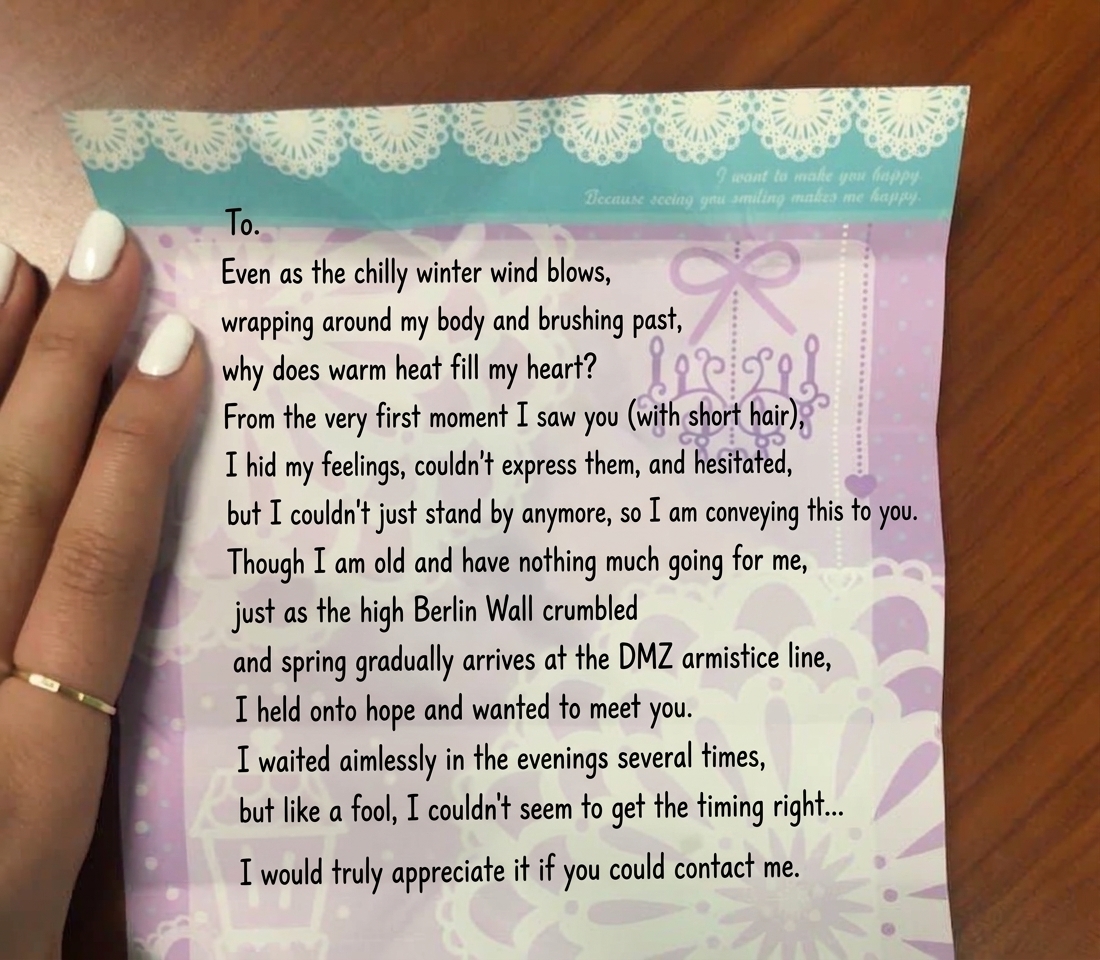 I want to make you happy.
Because seeing you smiling makes me happy.
To.
Even as the chilly winter wind blows,
wrapping around my body and brushing past,
why does warm heat fill my heart?
From the very first moment I saw you (with short hair),
I hid my feelings, couldn't express them, and hesitated,
but I couldn't just stand by anymore, so I am conveying this to you.
Though I am old and have nothing much going for me,
just as the high Berlin Wall crumbled
and spring gradually arrives at the DMZ armistice line,
I held onto hope and wanted to meet you.
I waited aimlessly in the evenings several times,
but like a fool, I couldn't seem to get the timing right...
I would truly appreciate it if you could contact me.